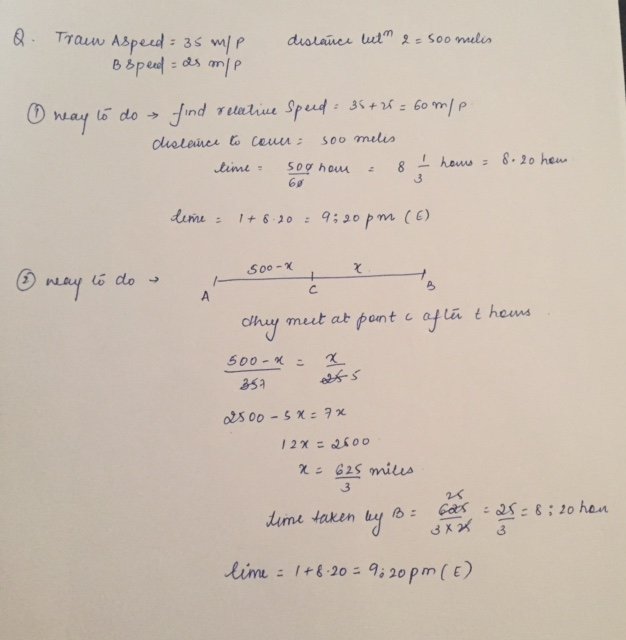 Q. Train A speed = 35 m/p distance betⁿ 2 = 500 miles
B speed = 25 m/p
① way to do → find relative speed = 35 + 25 = 60 m/p
distance to cover = 500 miles
time = 500/60 hour = 8 1/3 hours = 8.20 hour
time = 1 + 8.20 = 9:20 pm (E)
② way to do →
500-x x
A C B
they meet at point c after t hours
500-x/35 7 = x/25 5
2500 - 5x = 7x
12x = 2500
x = 625/3 miles
time taken by B = 25 625/3×25 = 25/3 = 8:20 hour
time = 1 + 8.20 = 9:20 pm (E)